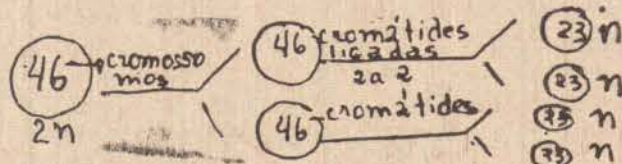 46 cromosso
mos
2n
46 cromátides
ligadas
2 a 2
46 cromátides
23 n
23 n
23 n
23 n